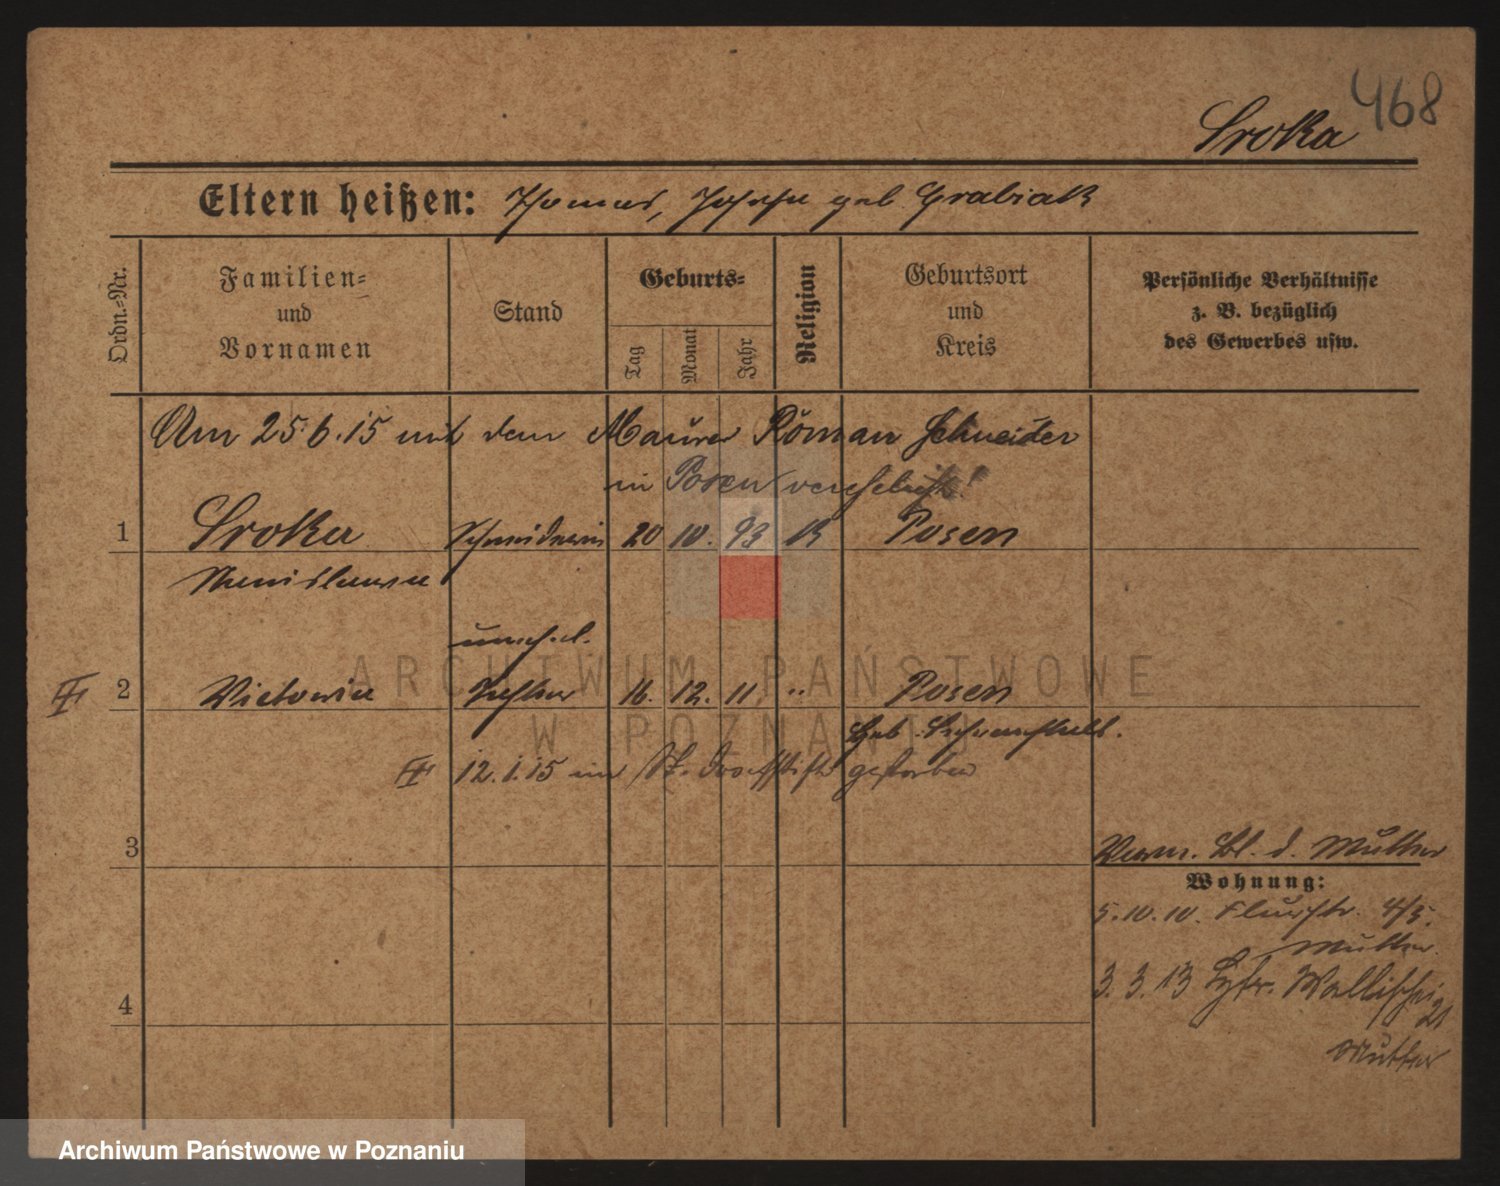 468
Sroka
Eltern heißen: Thomas, Josepha geb. Grabiak
Ordn.-Nr.
Familien-
und
Vornamen
Stand
Geburts-
Tag
Monat
Jahr
Religion
Geburtsort
und
Kreis
Persönliche Verhältnisse
z. B. bezüglich
des Gewerbes usw.
Am 25.6.15 mit dem Maurer Roman Schneider
in Posen verehelicht!
1 Sroka Schneiderin 20 10. 93 K Posen
Stanislawa
unehel.
II 2 Victoria Tochter 16. 12. 11 " Posen
Geb.
II 12.1.15 im St. Josefstift gestorben
3
Verm. Bl. d. Mutter
Wohnung:
5.10.10. Flurstr. 4/5.
Mutter.
3.3.13 Wallischei
21
Mutter
4
ARCHIWUM PAŃSTWOWE
W POZNANIU
Archiwum Państwowe w Poznaniu